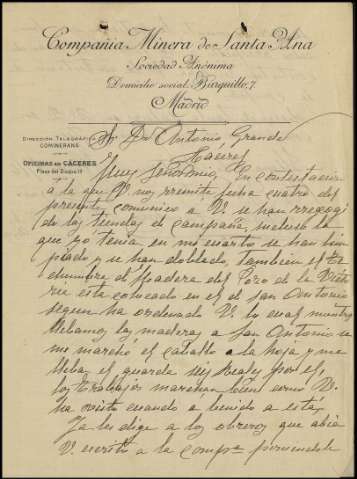 Compañia Minera de Santa Ana
Sociedad Anónima
Domicilio social: Barquillo, 7
Madrid
DIRECCION TELEGRÁFICA
COMINERANA
OFICINAS EN CÁCERES
Plaza del Duque
Sr Dn Antonio Grande
Caceres
Muy Señor mio, En contestacion
a la que V. nos rremite fecha cuatro del
presente comunico a V. se han rrecogi
do las tiendas de campaña, incluso la
que yo tenia en mi cuarto se han lim
piado y se han doblado, tambien el
de Madera del Pozo de la
esta colocado en el de San Antonio
segun ha ordenado V. lo cual mientras
llebamos las maderas a San Antonio se
me marchó el caballo a la hoja y me
lleba el guarda rreales por el,
los trabajos marchan bien como V.
ha visto cuando a benido a esta,
Ya les dige a los obreros que abia
V. escrito a la compª